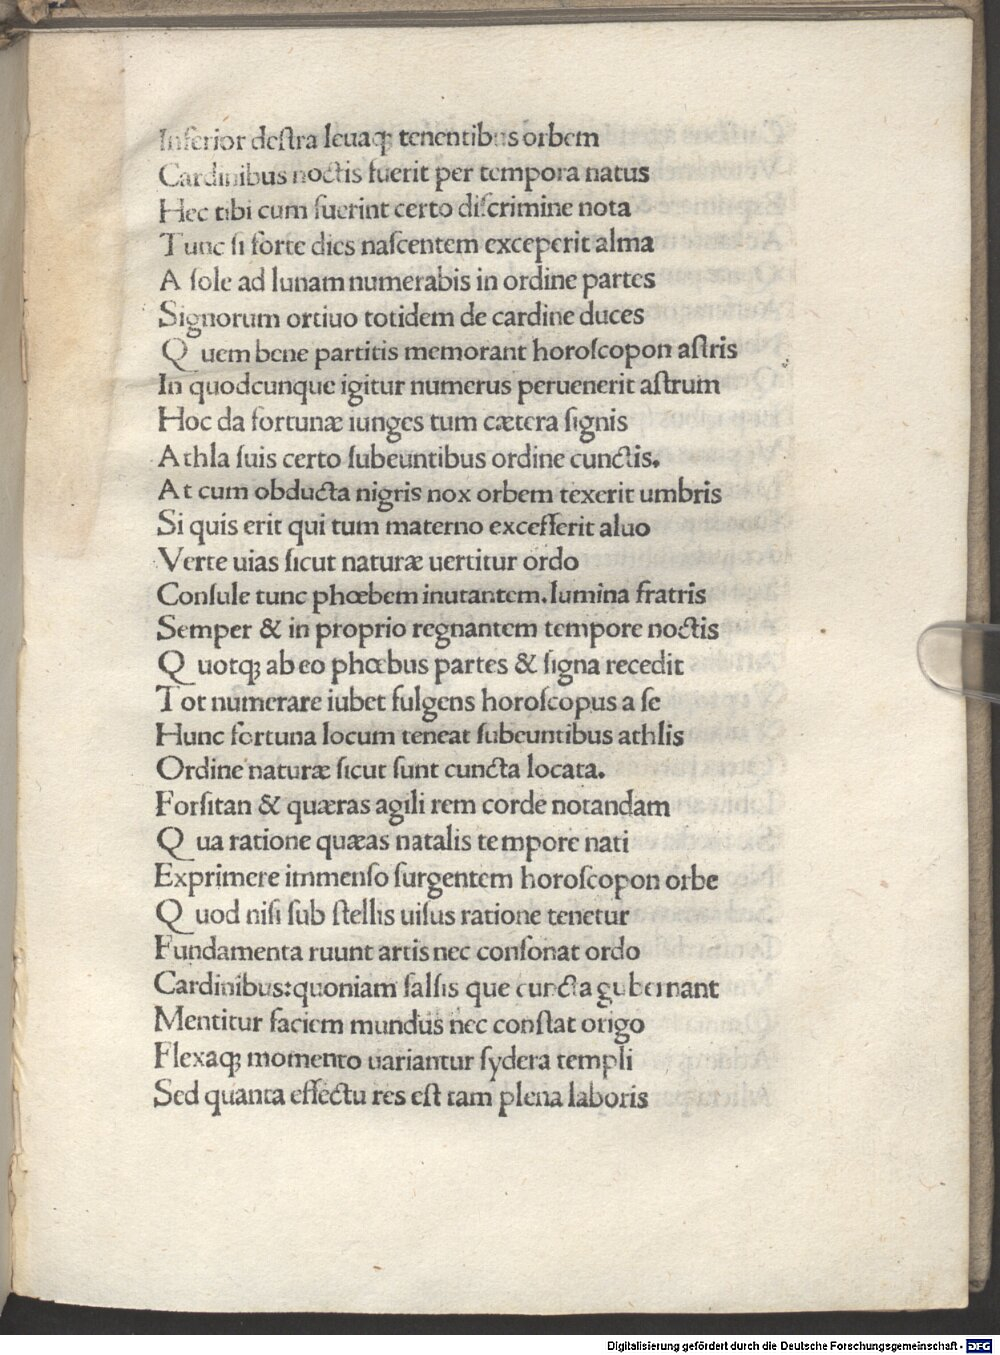 Inferior deſtra leuaqꝫ tenentibus orbem
Cardinibus noctis fuerit per tempora natus
Hec tibi cum fuerint certo diſcrimine nota
Tunc ſi forte dies naſcentem exceperit alma
A ſole ad lunam numerabis in ordine partes
Signorum ortiuo totidem de cardine duces
Q uem bene partitis memorant horoſcopon aſtris
In quodcunque igitur numerus peruenerit aſtrum
Hoc da fortunæ iunges tum cætera ſignis
Athla ſuis certo ſubeuntibus ordine cunctis.
At cum obducta nigris nox orbem texerit umbris
Si quis erit qui tum materno exceſſerit aluo
Verte uias ſicut naturæ uertitur ordo
Conſule tunc phœbem inutantem.lumina fratris
Semper & in proprio regnantem tempore noctis
Q uotqꝫ ab eo phœbus partes & ſigna recedit
Tot numerare iubet fulgens horoſcopus a ſe
Hunc fortuna locum teneat ſubeuntibus athlis
Ordine naturæ ſicut ſunt cuncta locata.
Forſitan & quæras agili rem corde notandam
Q ua ratione quæas natalis tempore nati
Exprimere immenſo ſurgentem horoſcopon orbe
Q uod niſi ſub ſtellis uiſus ratione tenetur
Fundamenta ruunt artis nec conſonat ordo
Cardinibus:quoniam falſis que cuncta gubernant
Mentitur faciem mundus nec conſtat origo
Flexaqꝫ momento uariantur ſydera templi
Sed quanta effectu res eſt tam plena laboris
Digitalisierung gefördert durch die Deutsche Forschungsgemeinschaft - DFG